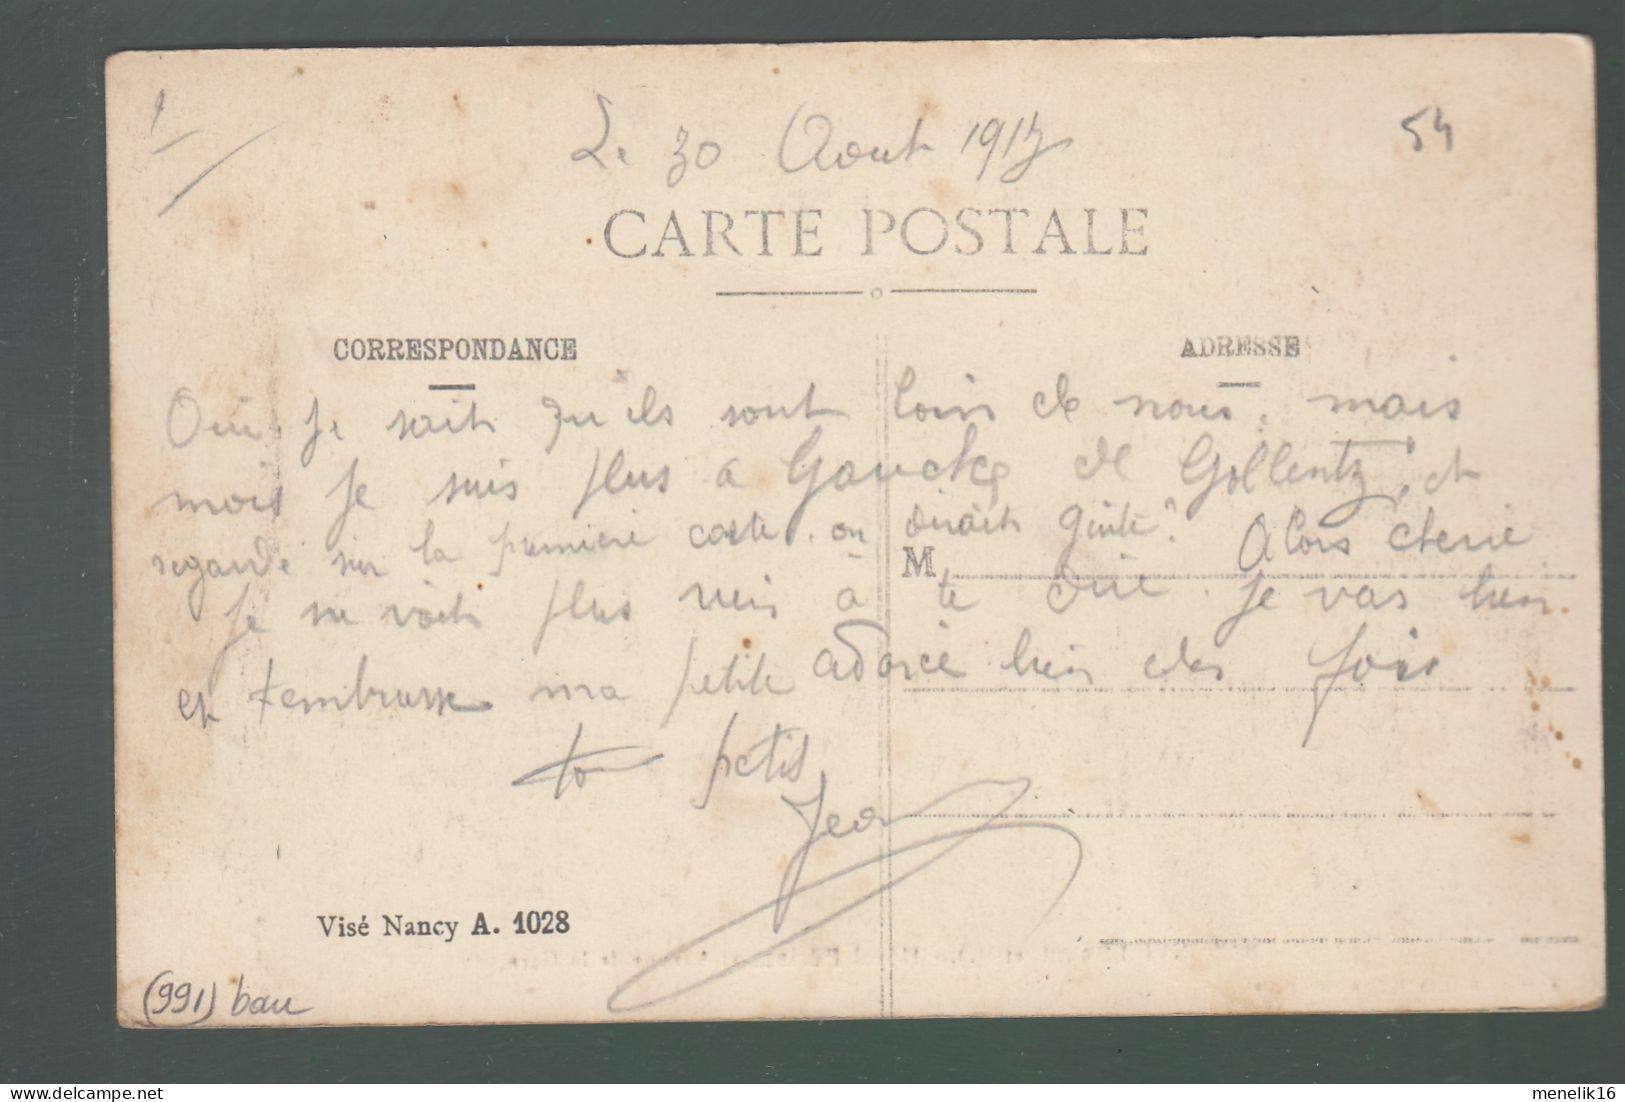 Le 30 Aout 1917
54
CARTE POSTALE
CORRESPONDANCE
ADRESSE
Oui je sait qu'ils sont loin de nous, mais
mois je suis plus a Gauche de Gollentz, et
regarde sur la premiere carte. on dirait Guité? Alors cherie
M
je ne voit plus rien à te dire. je vas bien.
et t'embrasse ma petite adorée bien des fois
ton petit
Jean
Visé Nancy A. 1028
(991) bau
delcampe.net
menelik16